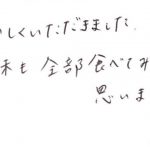 しくいただきました.
味も全部食べてみ
思いま